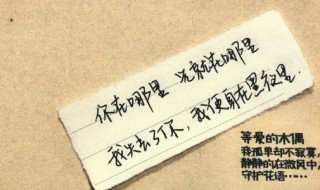 你在哪里 光就在哪里
我失去了你，我便身在黑夜里.
等爱的木偶
我孤单却不寂寞,
静静的在微风中,
守护花语……